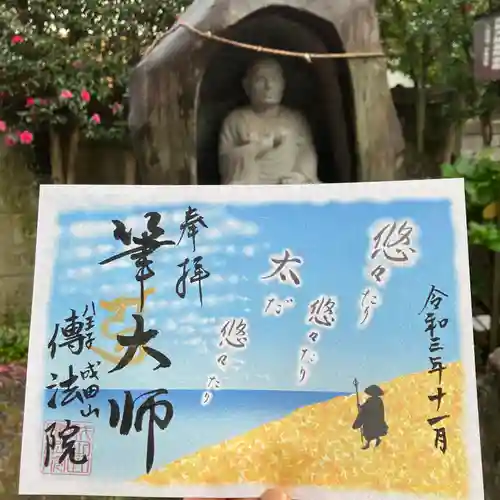 令和三年十一月
悠々たり
悠々たり
太だ
悠々たり
奉拝
筆大師
八王子成田山
傳法院